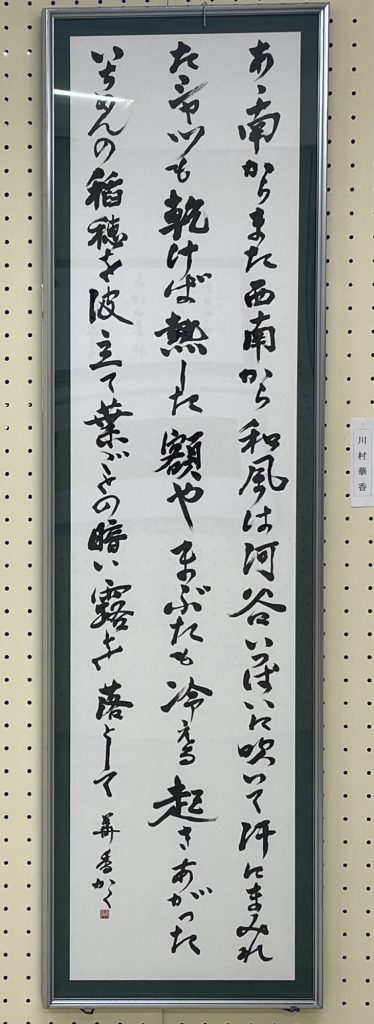 あゝ南からまた西南から和風は河谷いっぱいに吹いて汗にまみれ
たシャツも乾けば熱した額やまぶたも冷える起きあがった
いちめんの稲穂を波立て葉ごとの暗い露を落として 華香かく
川村華香